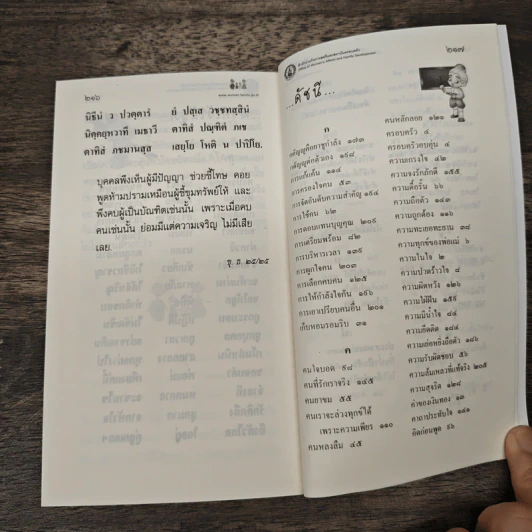 ๒๑๖
www.women-family.go.th
นิธีนํ ว ปวตฺตารํ ยํ ปสฺเส วชฺชทสฺสินํ
นิคฺคยฺหวาทึ เมธาวึ ตาทิสํ ปณฺฑิตํ ภเช
ตาทิสํ ภชมานสฺส เสยฺโย โหติ น ปาปิโย.
บุคคลพึงเห็นผู้มีปัญญา ช่วยชี้โทษ คอย
พูดห้ามปรามเหมือนผู้ชี้ขุมทรัพย์ให้ และ
พึงคบผู้เป็นบัณฑิตเช่นนั้น เพราะเมื่อคบ
คนเช่นนั้น ย่อมมีแต่ความเจริญ ไม่มีเสีย
เลย.
ขุ. ธ. ๒๕/๒๕
๒๑๗
Office of Women's Affairs and Family Development
...ดัชนี...
ก
กตัญญูคือยาชูกำลัง ๑๗๓
กตัญญูต่อตัวเอง ๑๙๘
การแก้แค้น ๑๑๔
การครองใจคน ๕๓
การจัดอันดับความสำคัญ ๑๙๔
การใช้คน ๖๒
การตอบแทนบุญคุณ ๒๐๙
การเตรียมพร้อม ๘๒
การบริหารเวลา ๑๓๙
การผูกใจคน ๒๐๓
การเลือกคบคน ๑๒๕
การให้กำลังใจกัน ๑๙๖
การเอาเปรียบคนอื่น ๒๐๑
เก็บหอมรอมริบ ๓๑
ค
คนใจบอด ๙๘
คนที่รักเราจริง ๑๔๕
คนยาขม ๕๕
คนเราจะล่วงทุกข์ได้
เพราะความเพียร ๑๑๐
คนหลงลืม ๔๕
คนหลักลอย ๑๒๑
ครอบครัว ๔
ครอบครัวอบอุ่น ๔
ความเกรงใจ ๔๒
ความจงรักภักดี ๑๕๕
ความดื้อรั้น ๖๖
ความถือตัว ๑๔๓
ความถูกต้อง ๑๑๖
ความทะเยอทะยาน ๓๒
ความทุกข์ของพ่อแม่ ๖
ความในใจ ๒
ความปวดร้าวใจ ๘
ความผิดหวัง ๑๒๖
ความใฝ่ฝัน ๑๕๙
ความมีน้ำใจ ๔๔
ความยึดติด ๑๔๔
ความเย่อหยิ่งถือตัว ๑๔๖
ความรับผิดชอบ ๕๖
ความล้มเหลวที่แท้จริง ๒๐๕
ความสุจริต ๑๒๘
ค่าของเงินทอง ๑๓
คาถาประทับใจ ๑๔๑
คิดก่อนพูด ๙๖